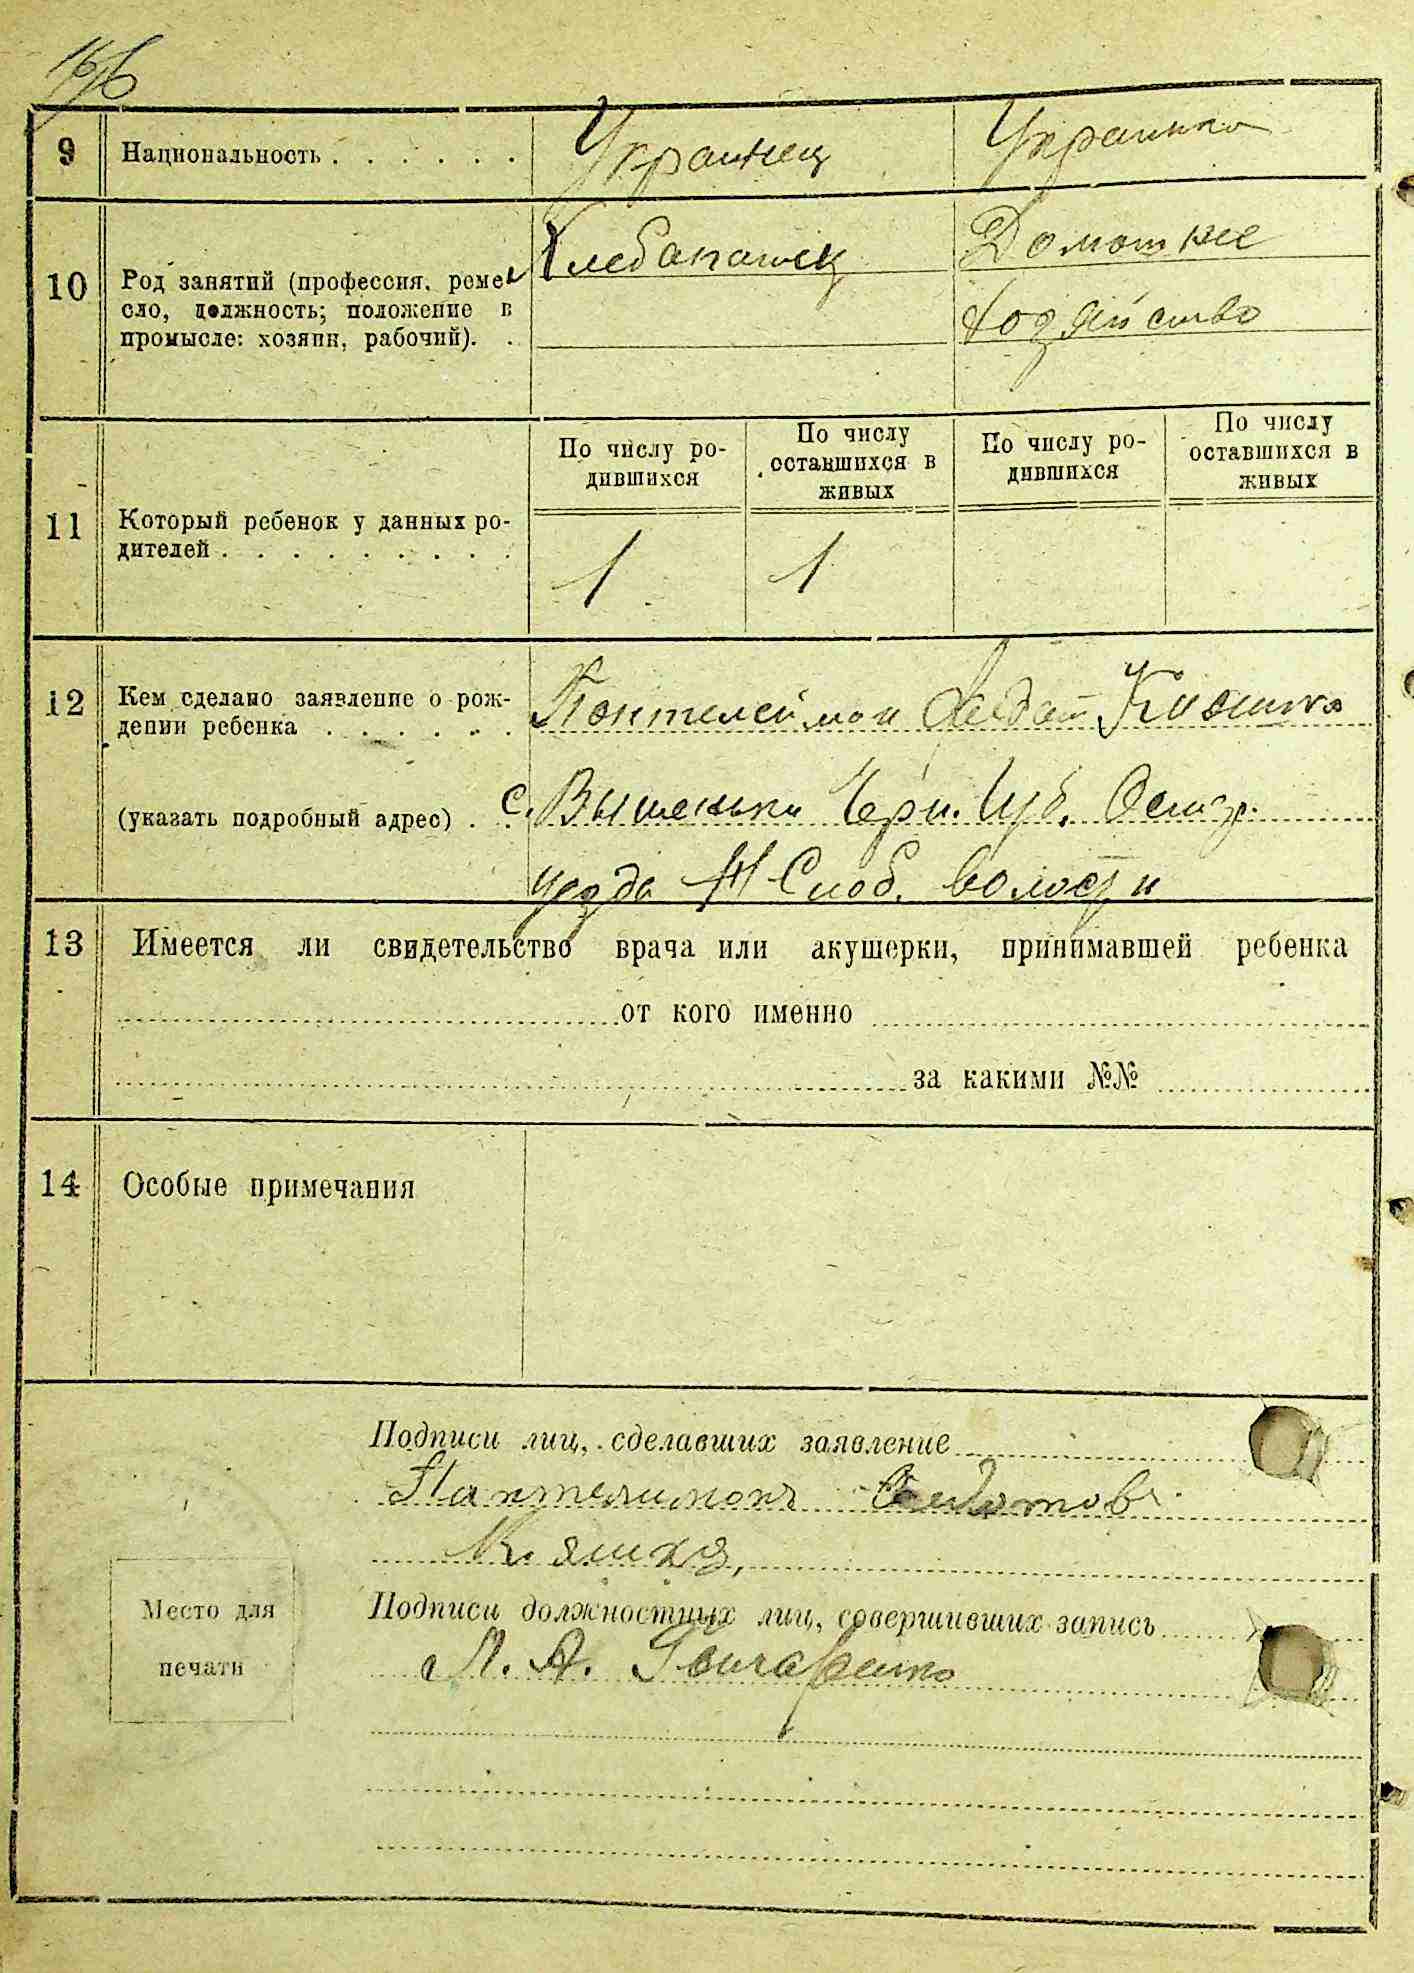 9 Национальность . . . . . . Украинец Украинка
10 Род занятий (профессия, ремесло, должность; положение в промысле: хозяин, рабочий). .
Хлебапашец
Домашнее
хозяйство
11 Который ребенок у данных родителей . . . . . . . . .
По числу ро-
дившихся
По числу
оставшихся в
живых
По числу ро-
дившихся
По числу
оставшихся в
живых
1 1
12 Кем сделано заявление о рож-
дении ребенка . . . . . .
Понтелеймон Федот Кияшко
(указать подробный адрес) . . с. Вышеньки Черн. Губ. Остер.
уезда Н Слоб. волости
13 Имеется ли свидетельство врача или акушерки, принимавшей ребенка
от кого именно
за какими №№
14 Особые примечания
Подписи лиц, сделавших заявление
Пантелимонъ Федотовъ
Кияшко,
Подписи должностных лиц, совершивших запись
Место для
печати